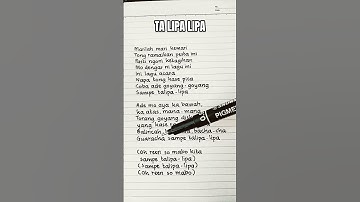 TA LIPA LIPA
Marilah mari kemari
Tong ramaikan pesta ini
Pasti ngoni ketagihan
Mo dengar ni lagu ini
Ini lagu acara
Napa tong kase pica
Coba ade goyang-goyang
Sampe talipa-lipa
Ade mo aya ka bawah,
ka atas, mana-mang
Torang goyang
yang kase
Balincah bacha-cha
Guaracha sampe talipa-lipa
(Oh reen so mabo kita
sampe talipa-lipa)
(Sampe talipa-lipa)
(Oh reen so mabo)
PIGME